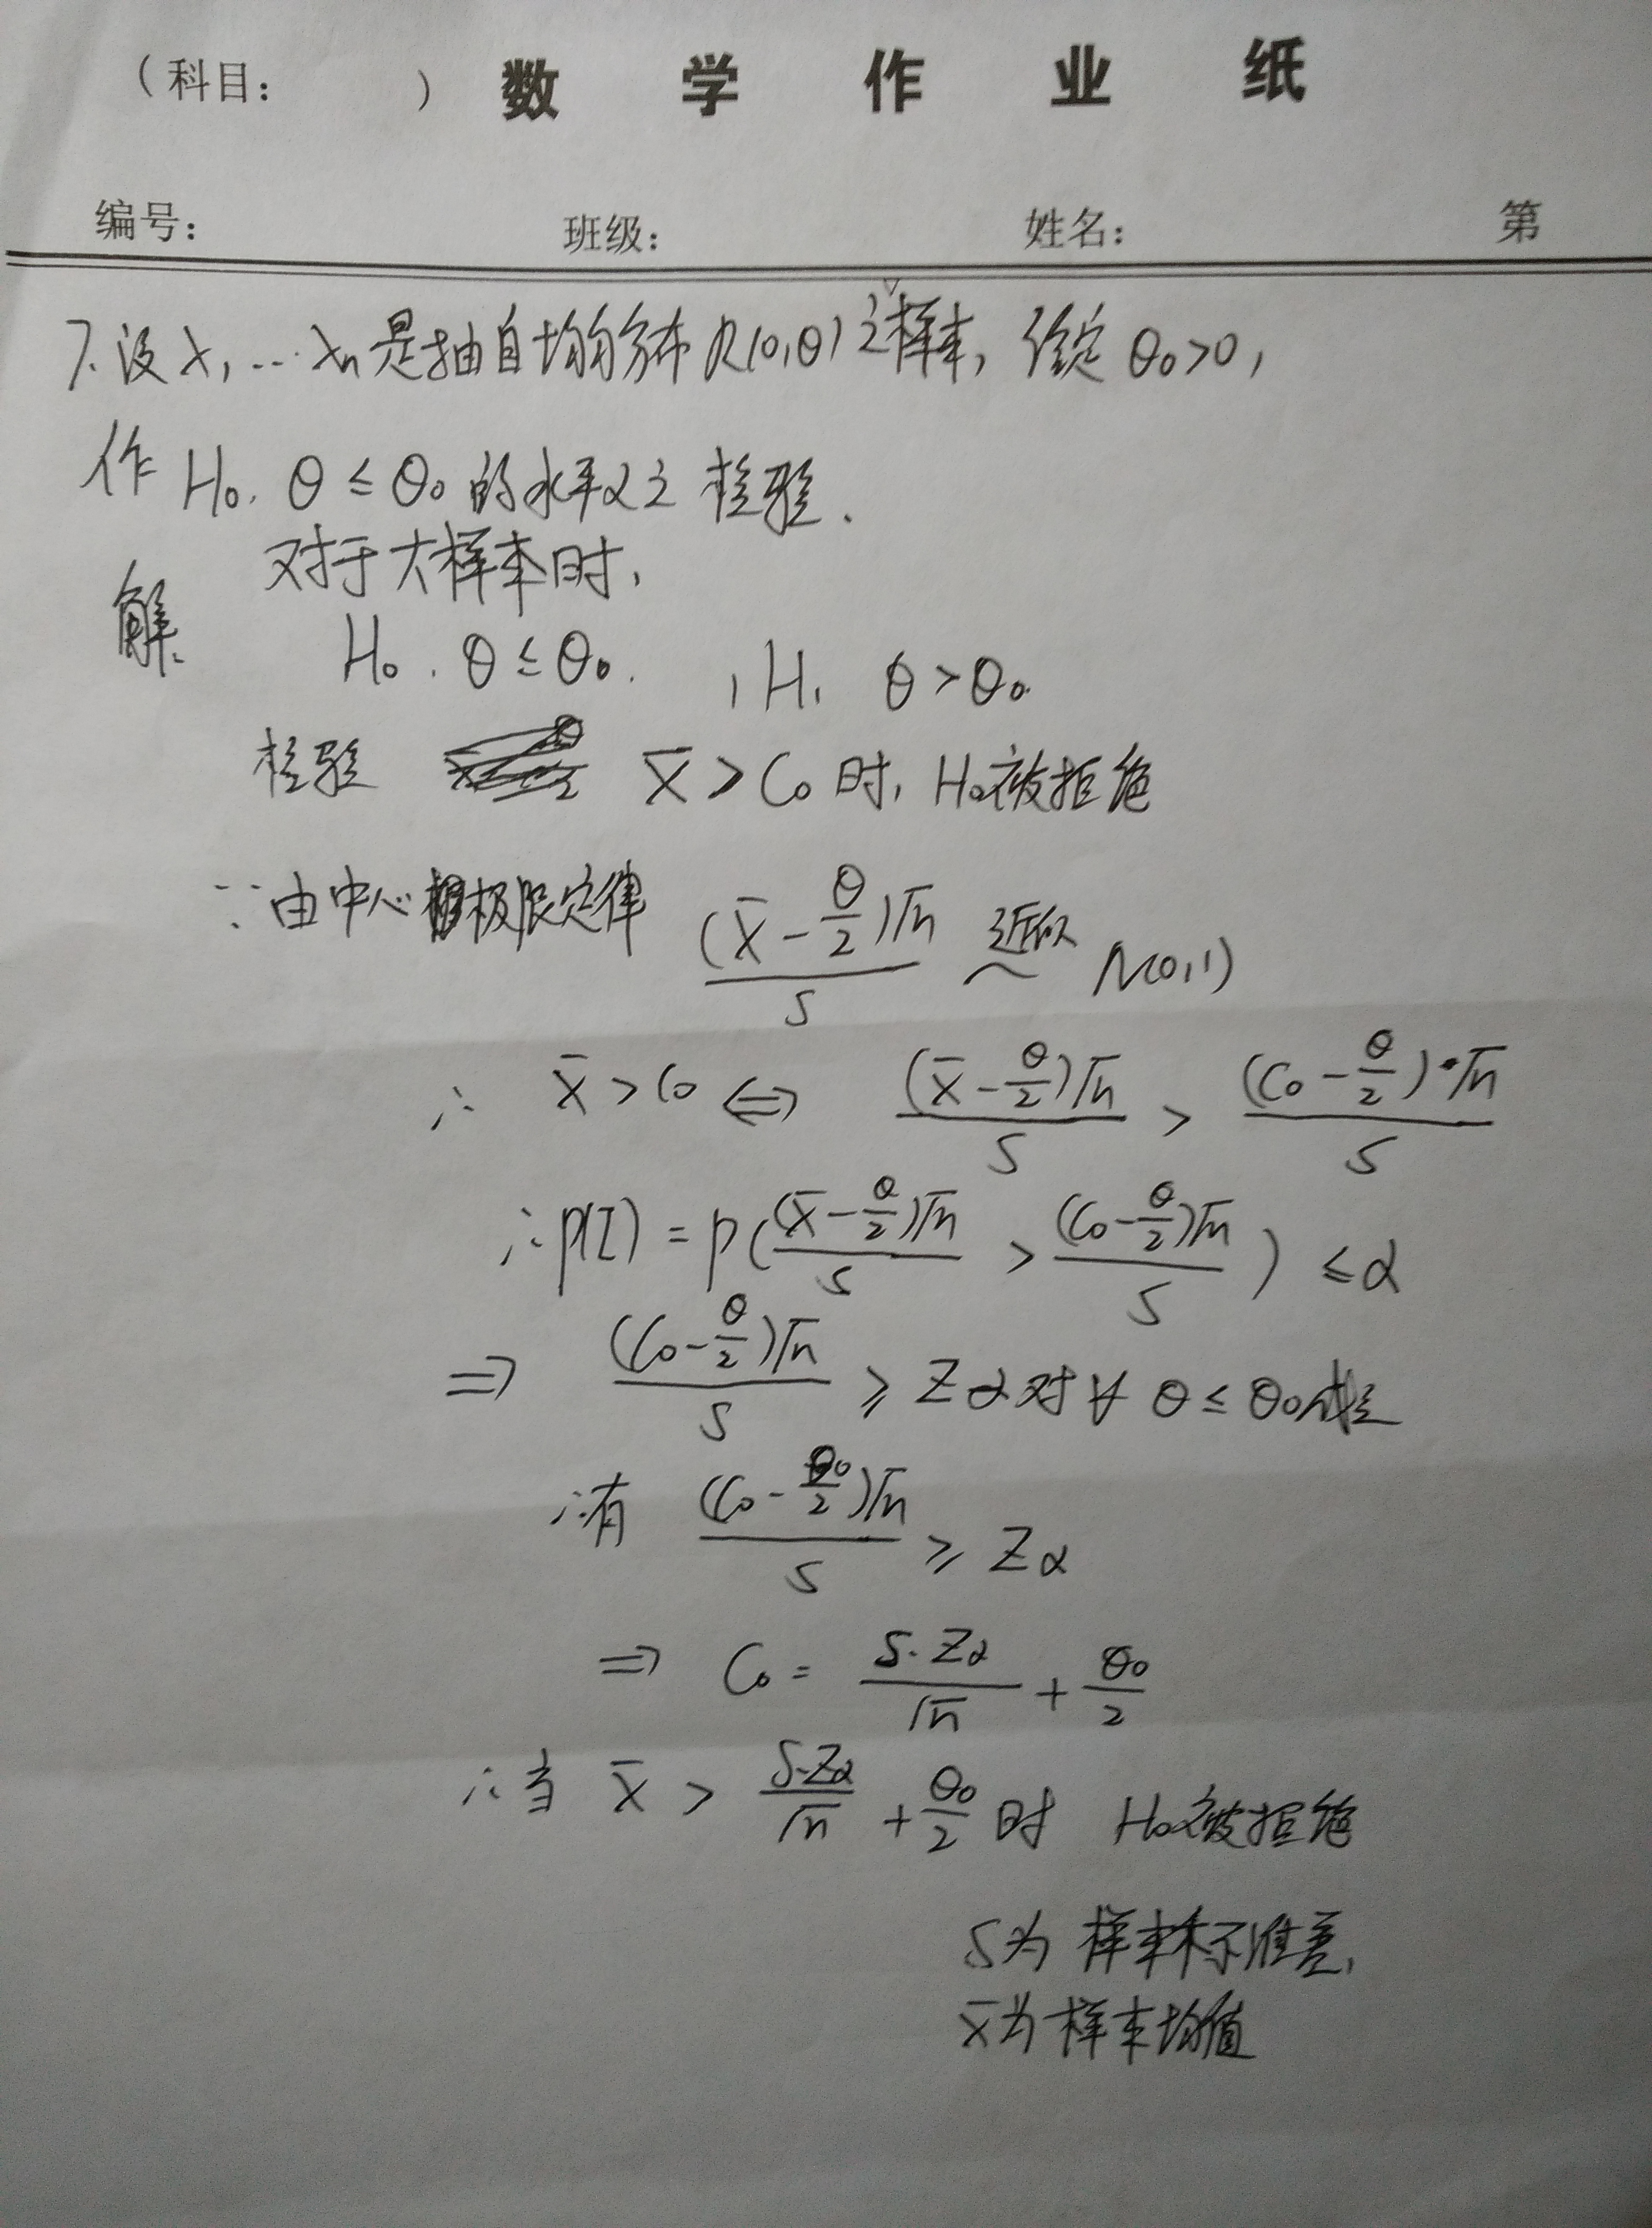 （科目：　　）数 学 作 业 纸
编号：　班级：　姓名：　第
7. 设 X₁, … Xₙ 是抽自均匀分布 R(0,θ) 之样本, 给定 θ₀>0,
作 H₀: θ ≤ θ₀ 的水平α之检验.
解. 对于大样本时,
H₀: θ ≤ θ₀. , H₁ θ > θ₀.
检验 X̄ > C₀ 时, H₀被拒绝
∵ 由中心极限定律 (X̄ - θ/2)√n / S 近似 ~ N(0,1)
∴ X̄ > C₀ ⇔ (X̄ - θ/2)√n / S > (C₀ - θ/2)·√n / S
∴ P(I) = P( (X̄ - θ/2)√n / S > (C₀ - θ/2)√n / S ) ≤ α
⇒ (C₀ - θ/2)√n / S ≥ Zα 对 ∀ θ ≤ θ₀成立
∴有 (C₀ - θ₀/2)√n / S ≥ Zα
⇒ C₀ = S·Zα / √n + θ₀/2
∴当 X̄ > S·Zα / √n + θ₀/2 时 H₀被拒绝
S为 样本标准差,
X̄为样本均值